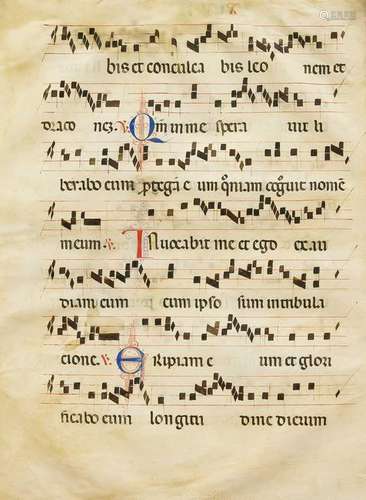 bis et conculca bis leo nem et
draco nez. v. Qm in me spera uit li
berabo eum ꝓtegā e um qm̄iam cogͦuit nomē
meum. v. Inuocabit me et ego exau
diam eum cum ipso sum in tribula
cione. v. Eripiam e um et glori
ficabo eum longitu dine dierum